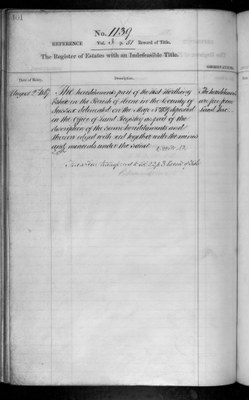 No. 1139
REFERENCE Vol. 3 p. 51 Record of Title.
The Register of Estates with an Indefeasible Title.
OBSERVATIONS.
Date of Entry.
Description.
August 2
All hereditaments part of the West Worthing
Estate in the Parish of in the County of
Sussex delineated on the Map No 1139 deposited
in the Office of Land Registry as part of the
description of the same hereditaments and
thereon edged with red together with the mines
and minerals under the same
The hereditaments
are free from
Land Tax.
Record of Title